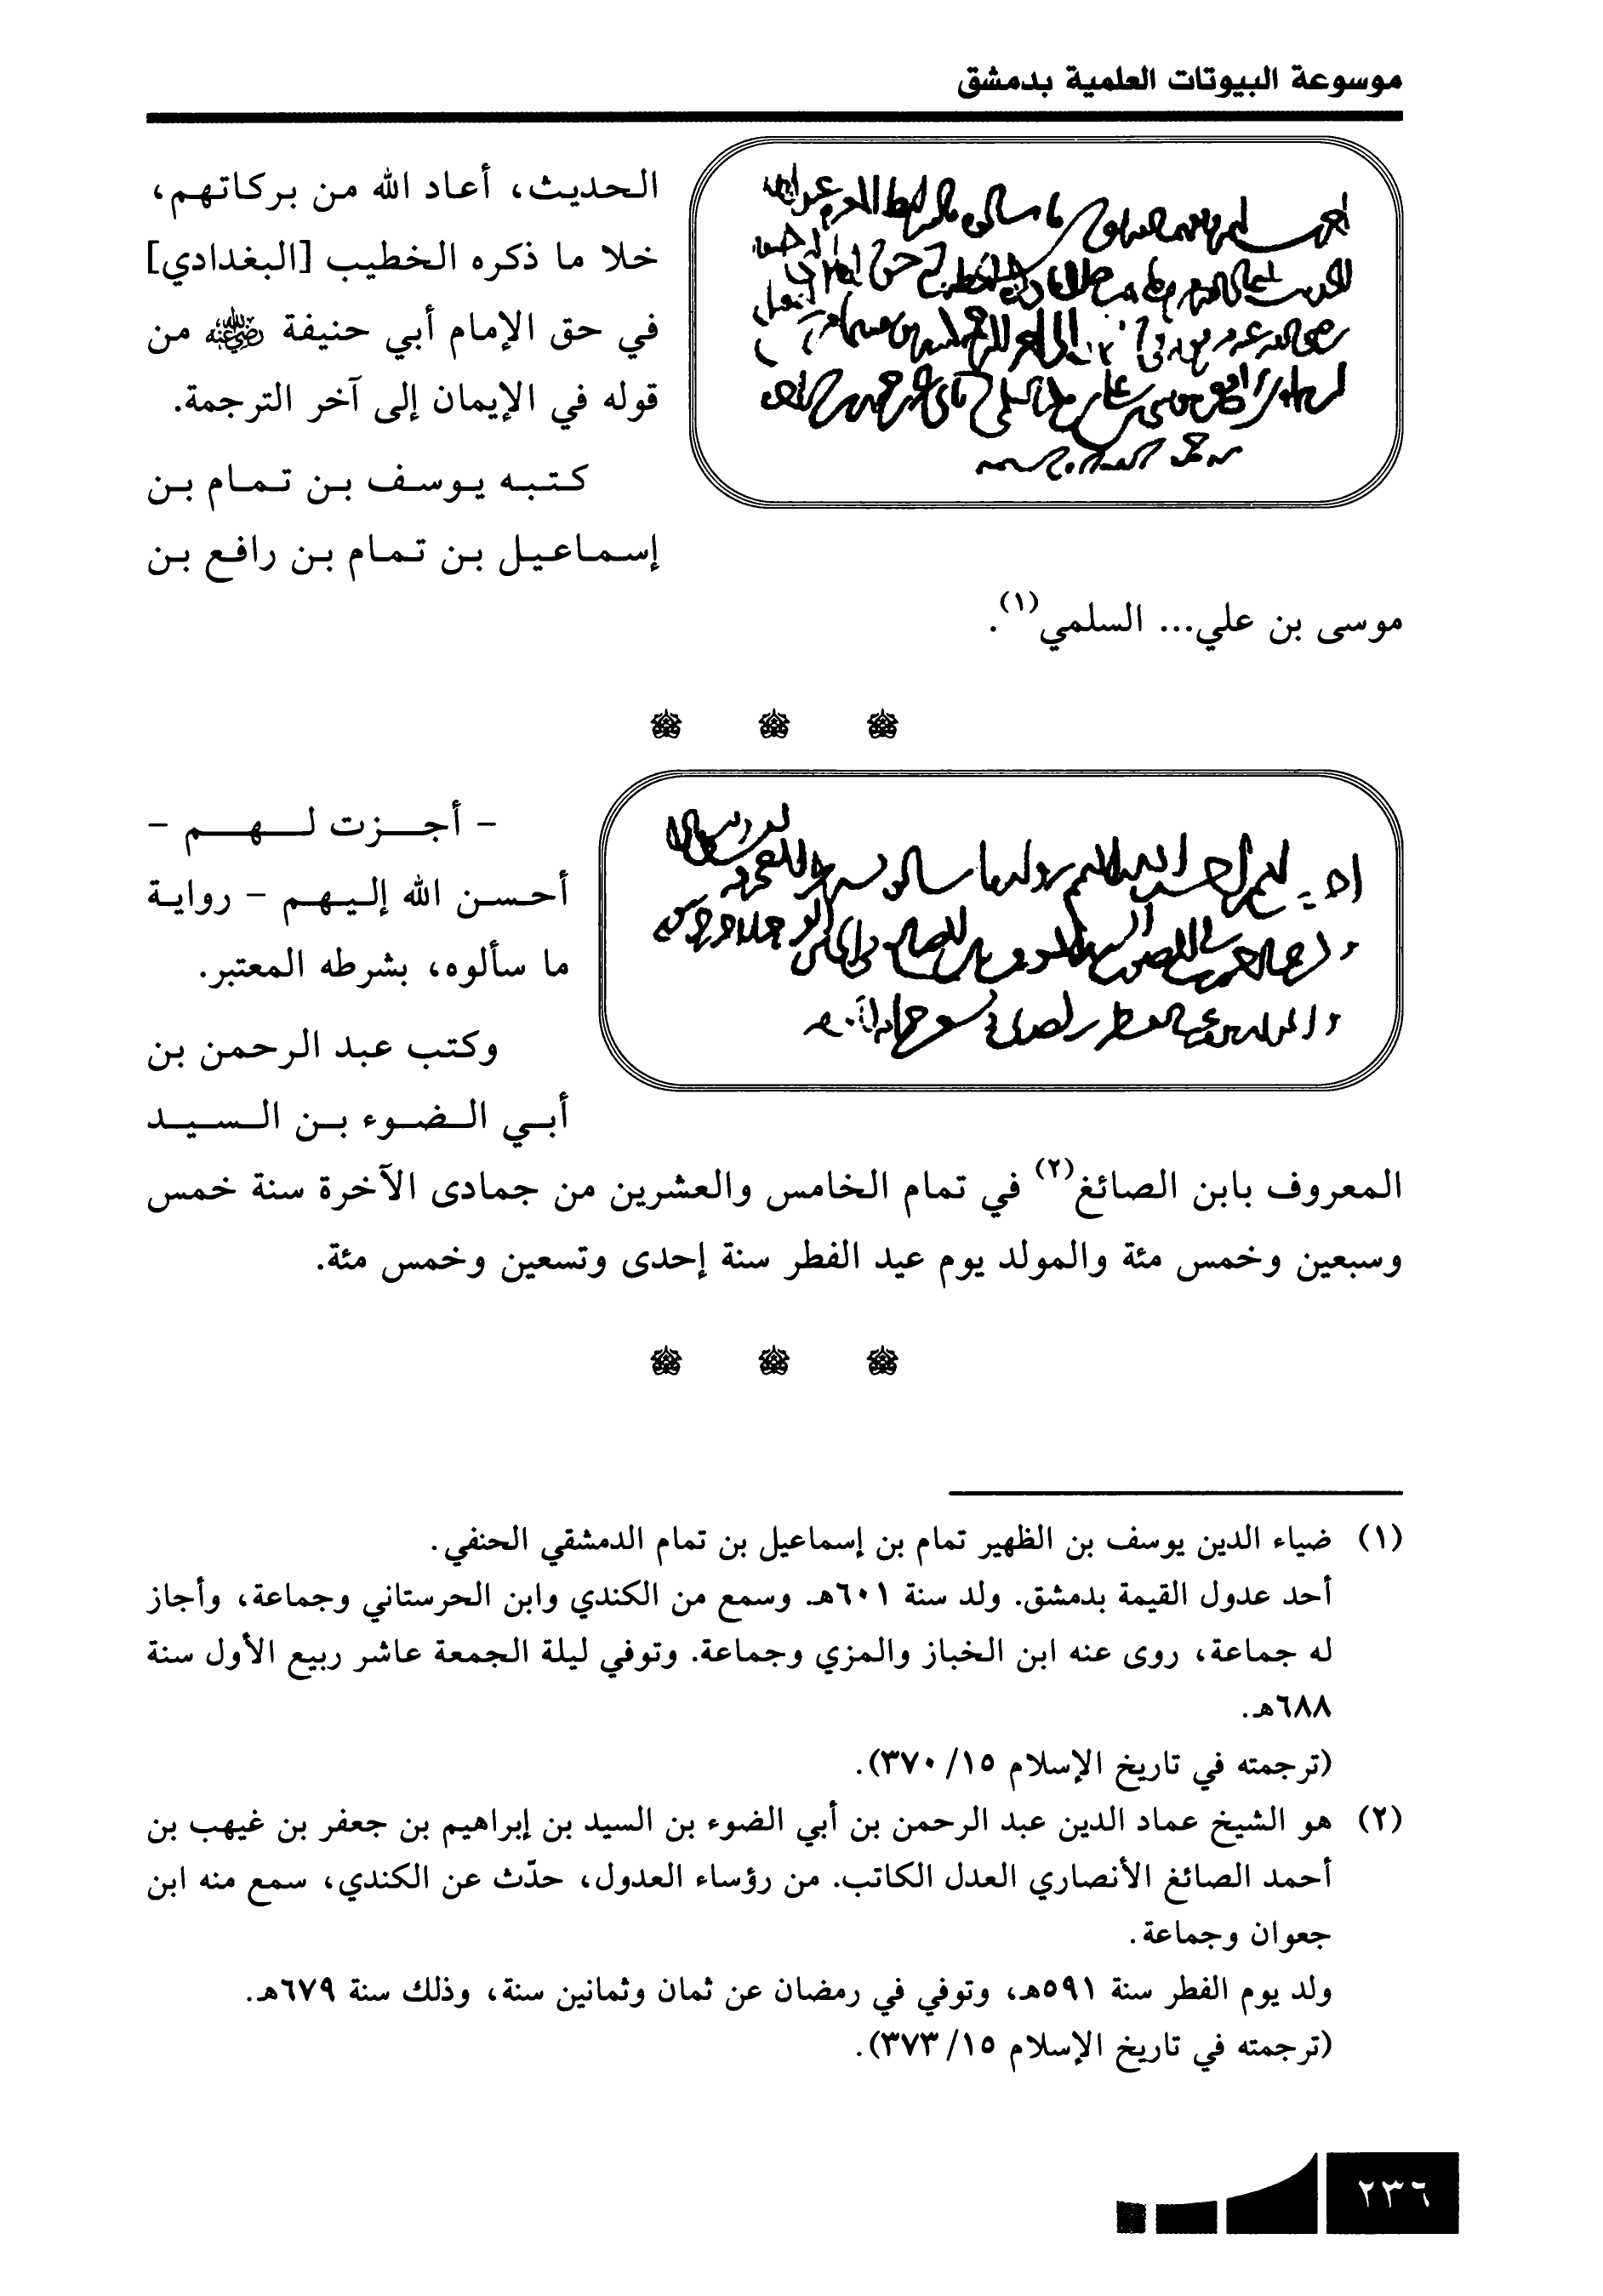 موسوعة البيوتات العلمية بدمشق
الحديث، أعاد الله من بركاتهم،
خلا ما ذكره الخطيب [البغدادي]
في حق الإمام أبي حنيفة ﵁ من
قوله في الإيمان إلى آخر الترجمة.
كتبه يوسف بن تمام بن
إسماعيل بن تمام بن رافع بن
موسى بن علي... السلمي(١).
- أجزت لهم -
أحسن الله إليهم - رواية
ما سألوه، بشرطه المعتبر.
وكتب عبد الرحمن بن
أبي الضوء بن السيد
المعروف بابن الصائغ(٢) في تمام الخامس والعشرين من جمادى الآخرة سنة خمس
وسبعين وخمس مئة والمولد يوم عيد الفطر سنة إحدى وتسعين وخمس مئة.
(١) ضياء الدين يوسف بن الظهير تمام بن إسماعيل بن تمام الدمشقي الحنفي.
أحد عدول القيمة بدمشق. ولد سنة ٦٠١هـ. وسمع من الكندي وابن الحرستاني وجماعة، وأجاز
له جماعة، روى عنه ابن الخباز والمزي وجماعة. وتوفي ليلة الجمعة عاشر ربيع الأول سنة
٦٨٨هـ.
(ترجمته في تاريخ الإسلام ١٥/ ٣٧٠).
(٢) هو الشيخ عماد الدين عبد الرحمن بن أبي الضوء بن السيد بن إبراهيم بن جعفر بن غيهب بن
أحمد الصائغ الأنصاري العدل الكاتب. من رؤساء العدول، حدّث عن الكندي، سمع منه ابن
جعوان وجماعة.
ولد يوم الفطر سنة ٥٩١هـ، وتوفي في رمضان عن ثمان وثمانين سنة، وذلك سنة ٦٧٩هـ.
(ترجمته في تاريخ الإسلام ١٥/ ٣٧٣).
٢٣٦